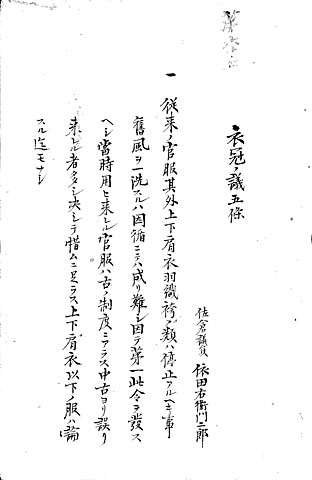 衣冠ノ議五條
佐倉議員 依田右衛門二郎
一 従来ノ官服其外上下肩衣羽織袴ノ類ハ停止アルヘキ事
舊風ヲ一洗スルハ因循ニテハ成リ難シ因テ第一此令ヲ發ス
ヘシ當時用ヒ来レル官服ハ古ノ制度ニアラス中古ヨリ誤リ
来レル者多シ决シテ惜ムニ足ラス上下肩衣以下ノ服ハ論
スル迄モナシ